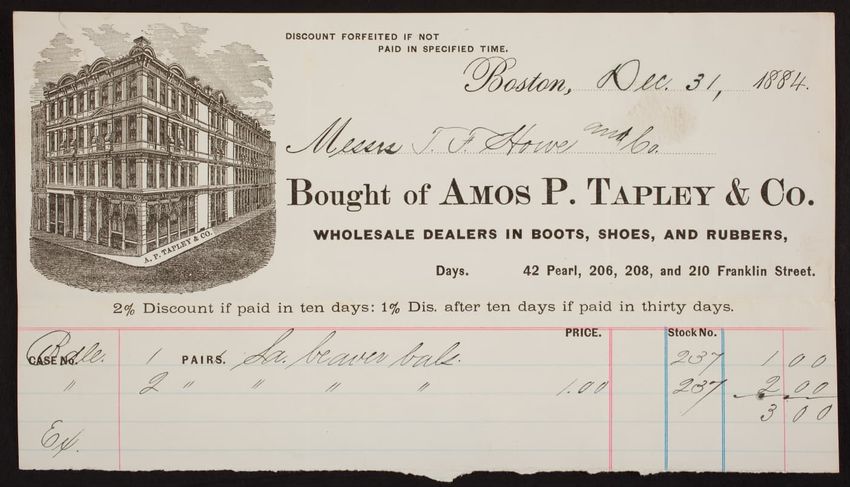 DISCOUNT FORFEITED IF NOT
PAID IN SPECIFIED TIME.
Boston, Dec. 31, 1884.
Messrs T. F. Howe and Co.
Bought of AMOS P. TAPLEY & CO.
WHOLESALE DEALERS IN BOOTS, SHOES, AND RUBBERS,
Days. 42 Pearl, 206, 208, and 210 Franklin Street.
A. P. TAPLEY & CO.
2% Discount if paid in ten days: 1% Dis. after ten days if paid in thirty days.
PRICE. Stock No.
CASE No. Bdle. 1 PAIRS. La. beaver bals. 237 1 00
" 2 " " " " 1.00 237 2 00
3 00
Ex.